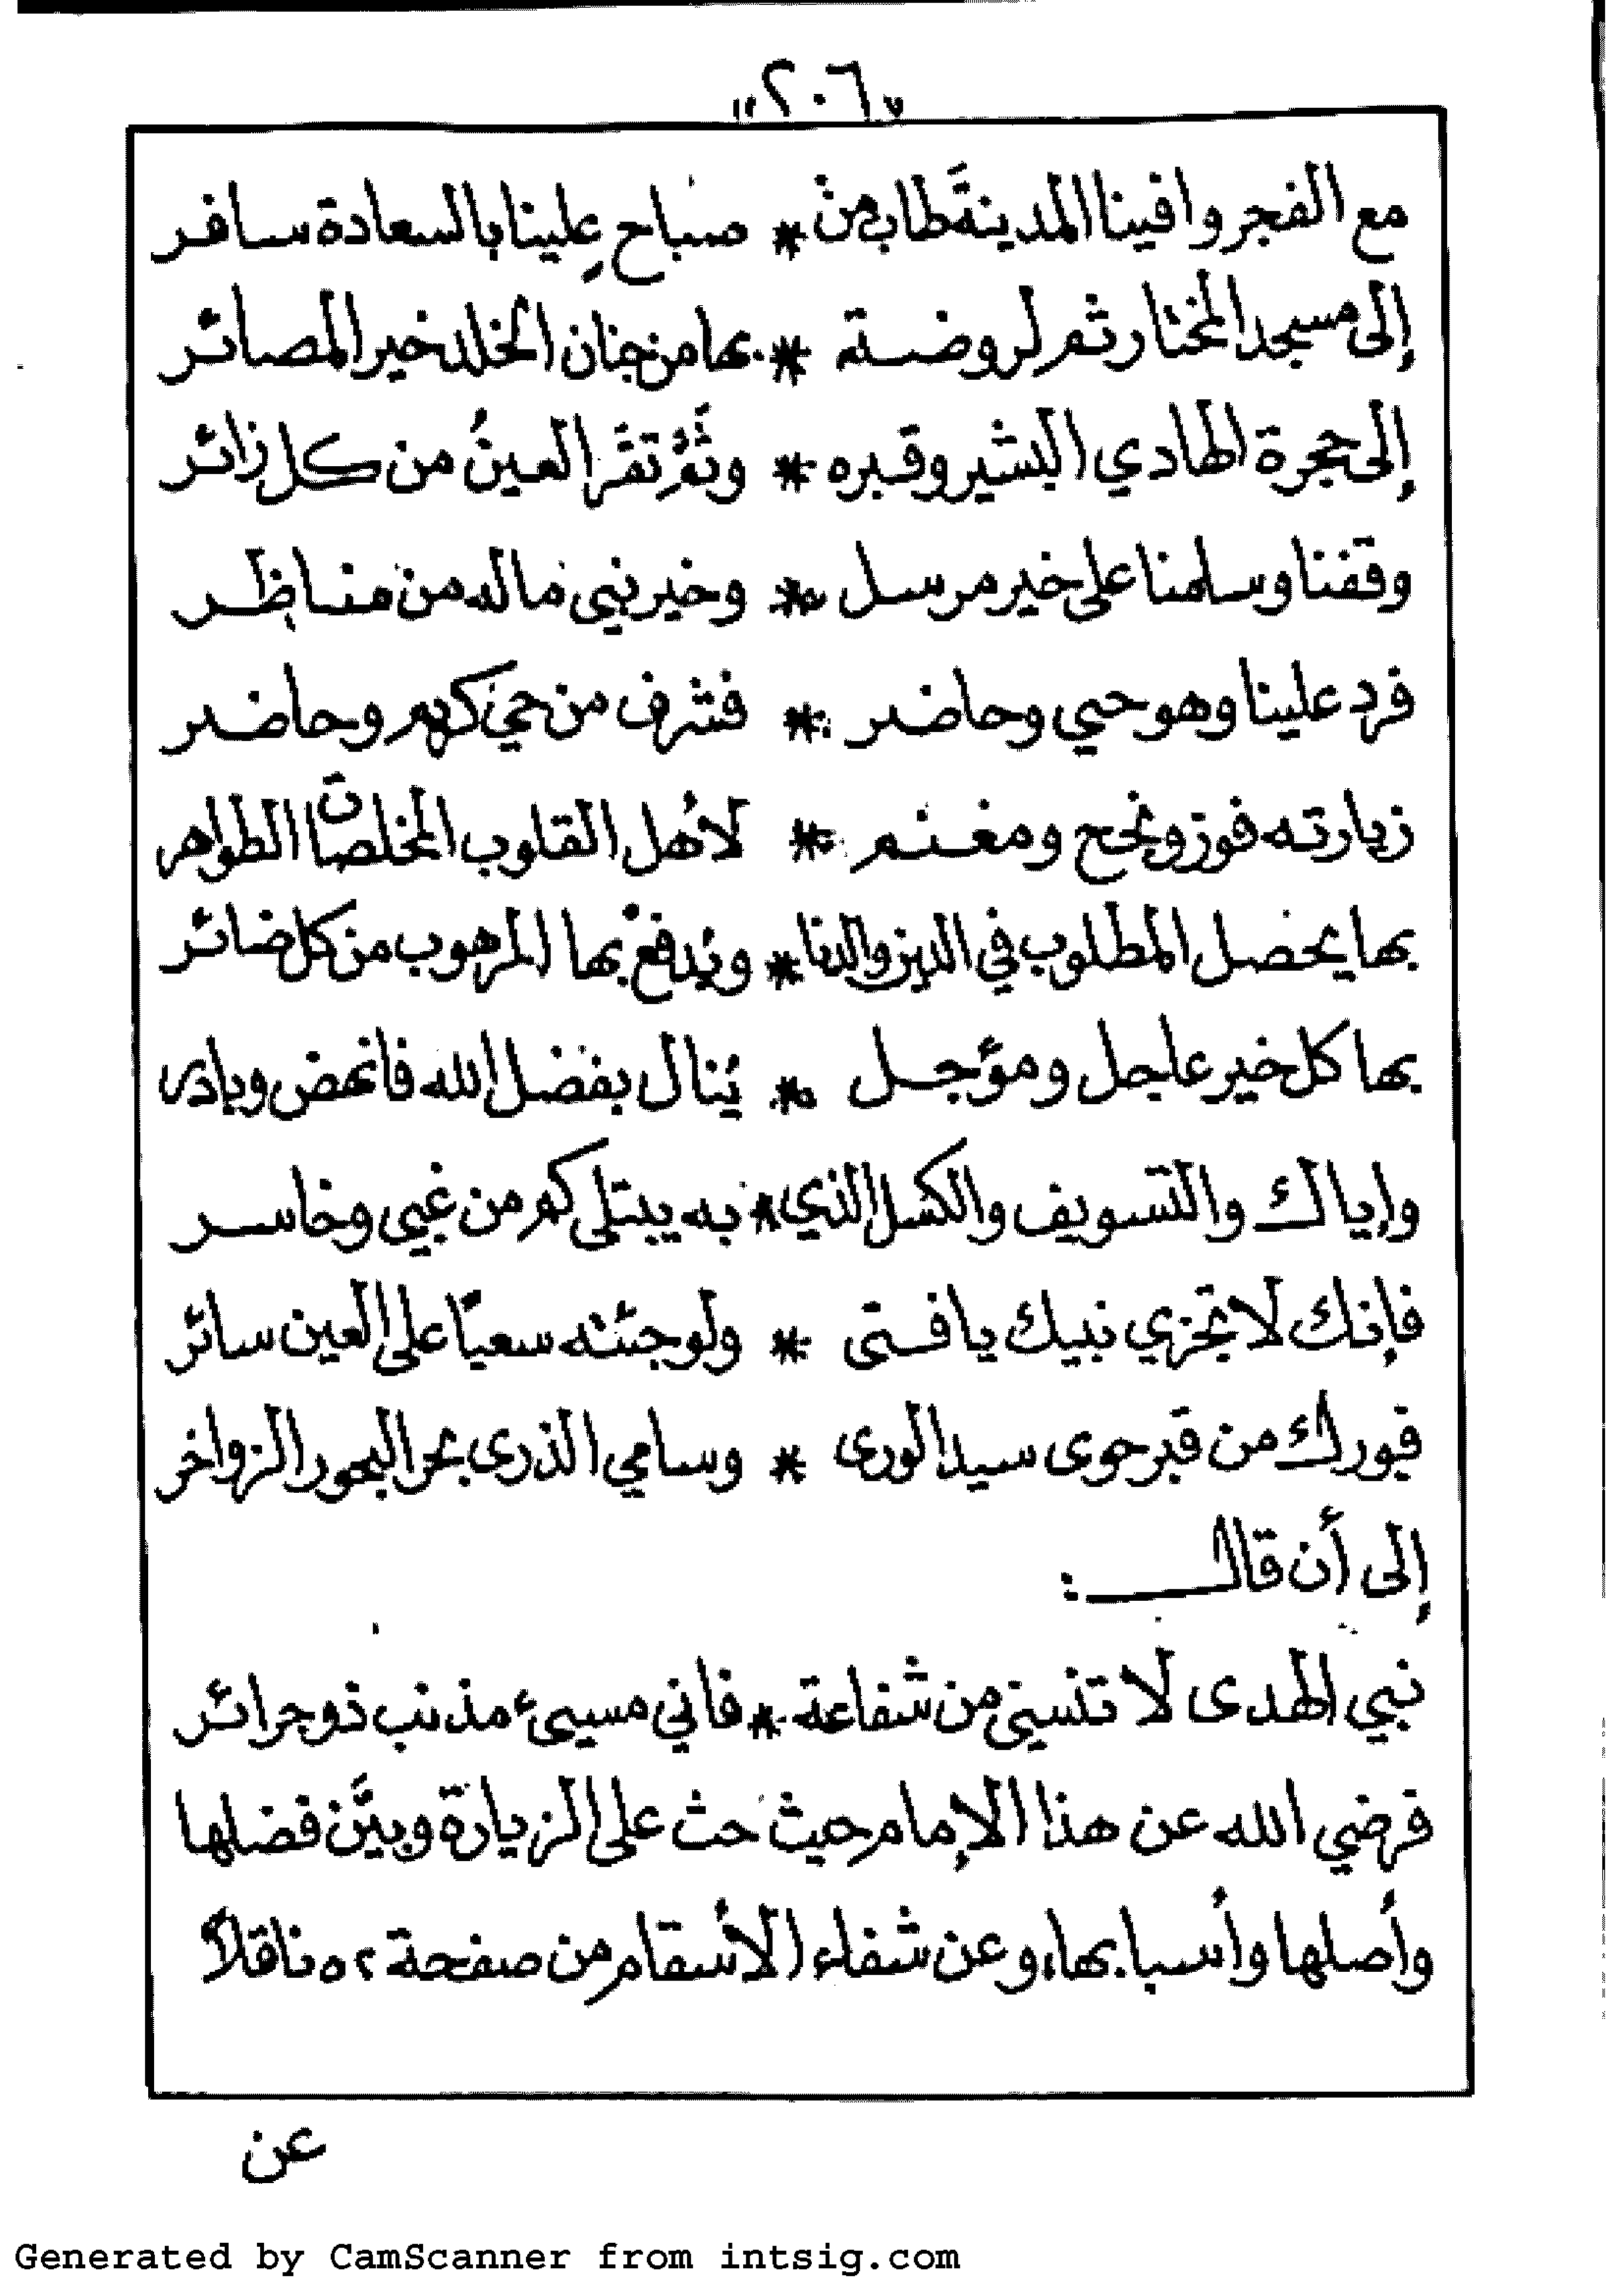 "٢٠٦"
مع الفجر وافينا المدينةَ طاب من * صباح علينا بالسعادة سافر
إلى مسجد المختار ثم لروضة * بها من جنان الخلد خير المصائر
إلى حجرة الهادي البشير وقبره * وثَمَّ تقَر العينُ من كل زائر
وقفنا وسلمنا على خير مرسل * وخير نبي ما له من مناظر
فرد علينا وهو حيي وحاضر * فشرف من حي كريم وحاضر
زيارته فوز ونجح ومغنم * لأهل القلوب المخلصات الطواهر
بها يحصل المطلوب في الدين والدنا * ويُدفع بها المرهوب من كل ضائر
بها كل خير عاجل ومؤجل * يُنال بفضل الله فانهض وبادر
وإياك والتسويف والكسل الذي * به يبتلى كم من غبي وخاسر
فإنك لا تجزي نبيك يا فتى * ولو جئته سعيًا على العين سائر
فبورك من قبر حوى سيد الورى * وسامي الذرى بحر البحور الزواخر
إلى أن قال :
نبي الهدى لا تنسني من شفاعة * فاني مسيئ مذنب ذو جرائر
فرضي الله عن هذا الإمام حيث حث على الزيارة وبيَّن فضلها
وأصلها وأسبابها، وعن شفاء الأسقام من صفحة ٥٢ ناقلاً
عن
Generated by CamScanner from intsig.com